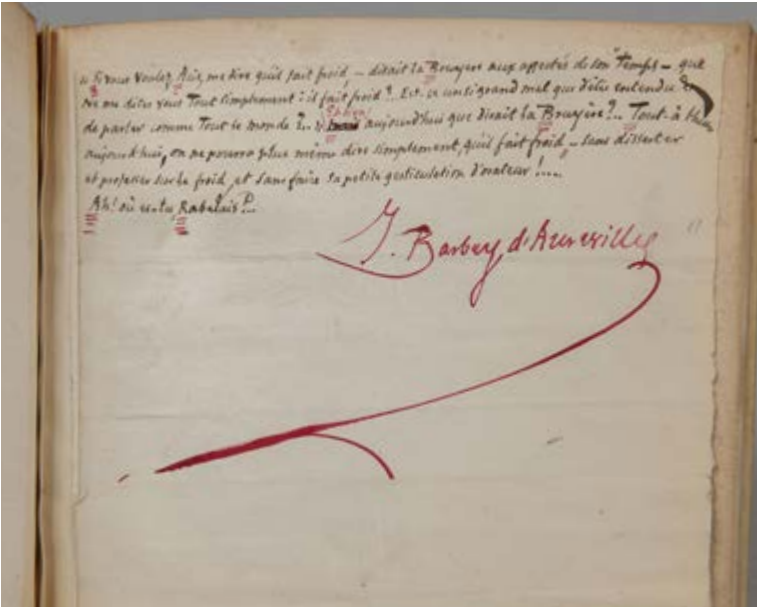 « Si vous voulez, Acis, me dire qu'il fait froid, — disait la Bruyère aux affectés de son temps — que
ne me dites vous Tout simplement : il fait froid ?.. Est-ce un si grand mal que d'être entendu &
de parler comme Tout le monde ?.. » Eh bien! aujourd'hui que dirait la Bruyère ?.. Tout-à l'heure
aujourd'hui, on ne pourra plus même dire simplement, qu'il fait froid, sans disserter
et professer sur le froid, et sans faire sa petite gesticulation d'orateur !...
Ah! où es-tu Rabelais ?..
J. Barbey d'Aurevilly